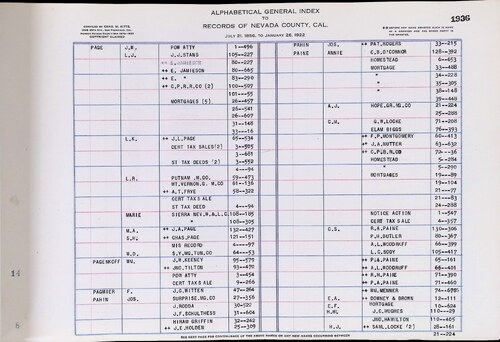 ALPHABETICAL GENERAL INDEX
TO
RECORDS OF NEVADA COUNTY, CAL.
JULY 21, 1869, TO JANUARY 28, 1922
COPYRIGHT CLAIMED
1936
PAGE J,W, POW ATTY 1--490
L,J, ++ J,J,STANS 105--227
++ E,JAMIESON 80--227
++ E, JAMIESON 80--665
++ E, " 83--290
++ C,P,R,R,CO (2) 100--507
101---55
MORTGAGES (5) 26--457
26--541
26--607
31--148
33---16
L,K, ++ J,L,PAGE 65--534
CERT TAX SALES(2) 3--505
3--681
ST TAX DEEDS (2) 3--552
4---94
L,R, PUTNAM ,M,CO, 59--473
MT,VERNON,G, M,CO 61--136
++ A,T,FRYE 58--322
CERT TAX SALE
ST TAX DEED 4---94
MARIE SIERRA NEV,W,& L,C 108--105
" 108--305
M,A, ++ J,A,PAGE 132--427
S,N, ++ CHAS,PAGE 121--151
MIS RECORD 4---97
W,D, S,Y,MG,TUN,CO 64---53
PAGENKOFF WM, J,W,KEENEY 95--575
++ JNO,TILTON 93--470
POW ATTY 3--454
CERT TAX SALE 9--266
PAGMIER F, J,G,WITTER 47--264
PAHIN JOS, SURPRISE,MG,CO 27--356
J,RODDA 30--502
J,F,SCHULTHESS 31--604
HIRAM GRIFFIN 32--242
++ J,E,HOLDEN 25--309
PAHIN JOS, ++ PAT,ROGERS 33--215
PAINE ANNIE C,B,O'CONNOR 128--392
HOMESTEAD 6--453
MORTGAGE 33--488
" 34--228
" 35--305
" 38--148
" 39--440
A,J, HOPE,GR,MG,CO 21--224
25--288
C,W, G,W,LOCKE 71--208
ELAM BIGGS 76--393
++ F,P,MONTGOMERY 60--413
++ J,A,NUTTER 63--632
++ C,P,R,R,CO
HOMESTEAD 5--284
" 5--290
MORTGAGES 19---89
19--104
21---77
21---83
24--288
NOTICE ACTION 1--547
CERT TAX SALE 4--357
C,S, R,A,PAINE 130--306
P,H,BUTLER 80--367
A,L,WOODRUFF 66--399
L,C,BODY 105--417
++ F,A,PAINE 65--161
++ A,L,WOODRUFF 66--401
++ R,H,PAINE 71--390
++ P,A,PAINE 71--460
++ WM,MENNER
E,A, ++ DOWNEY & BROWN 12--111
E,F, MORTGAGE 10--624
H,H, J,C,HUGHES 110---29
JNO,HAMILTON 110--405
H,J, ++ SAML,LOCKE (2) 28--161
21--224